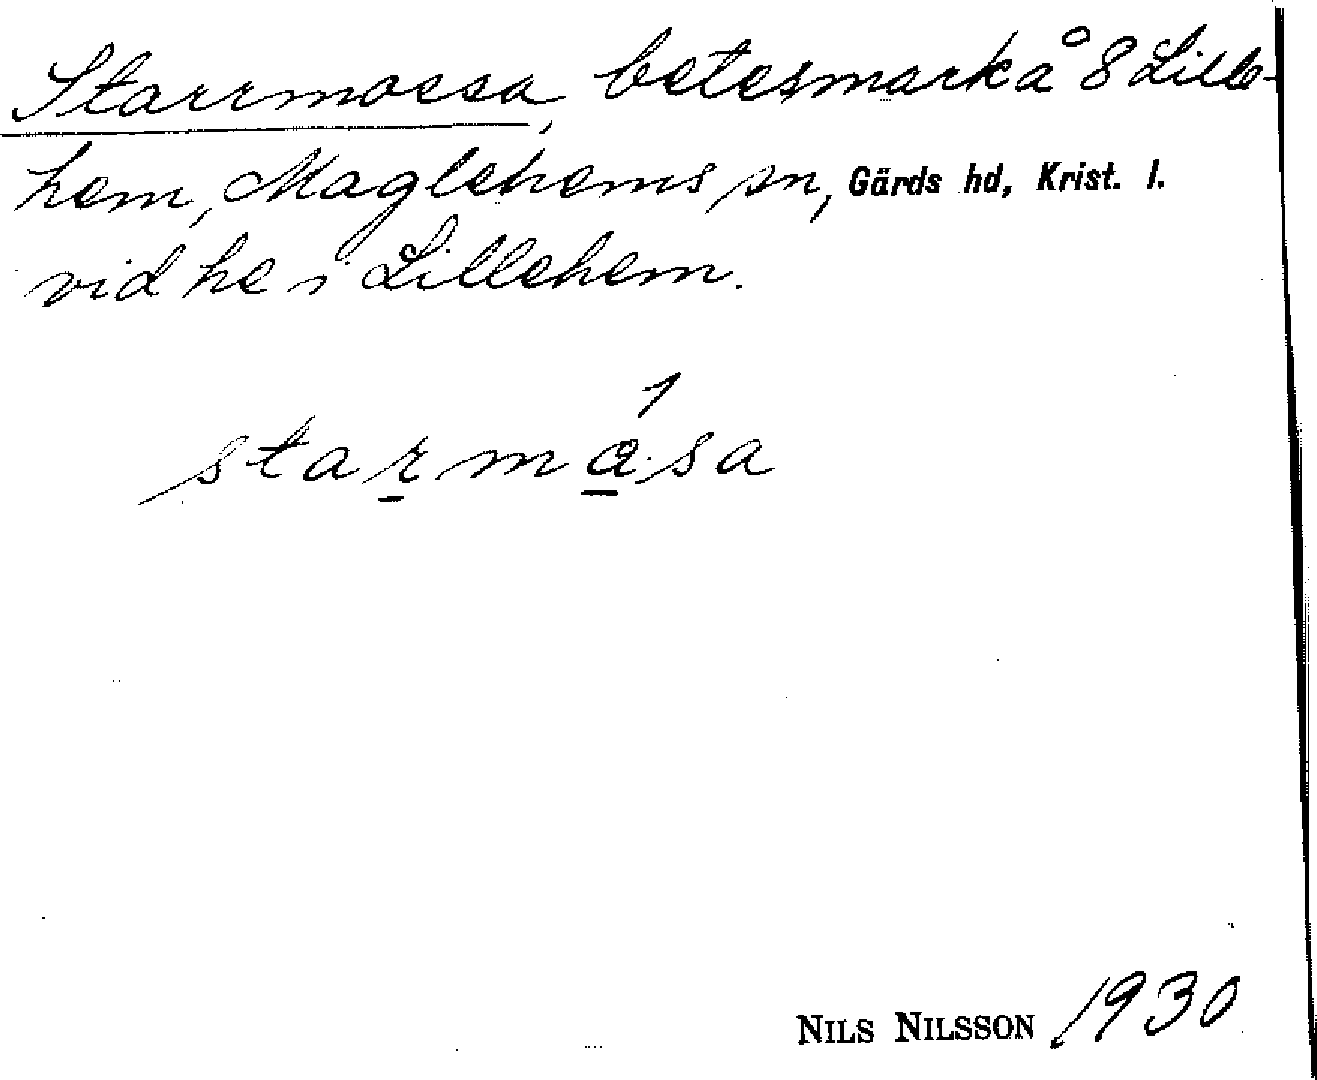 Starrmossa, betesmark å 8 Lille-
hem, Maglehems sn, Gärds hd, Krist. l.
vid he i Lillehem.
starmȧsa
NILS NILSSON 1930